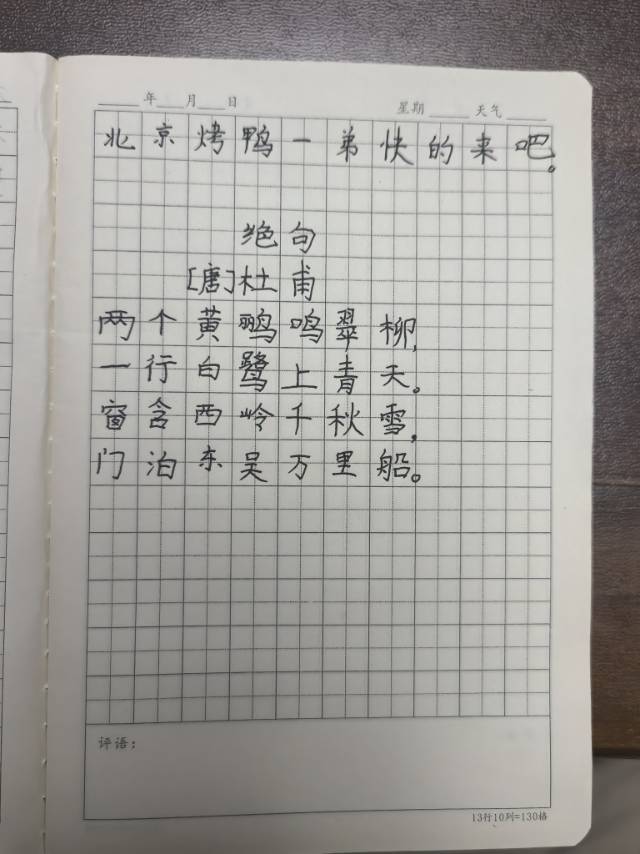 年 月 日 星期 天气
北京烤鸭一弟快的来吧。
绝句
[唐]杜甫
两个黄鹂鸣翠柳,
一行白鹭上青天。
窗含西岭千秋雪,
门泊东吴万里船。
评语:
13行10列=130格